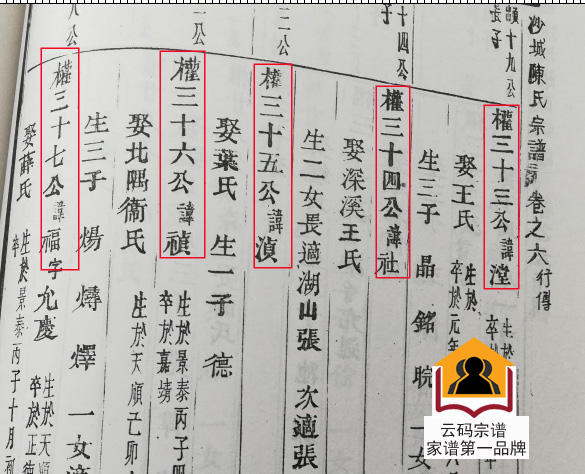 沙城陳氏宗譜 卷之六 行傳
韻十九公
長子
權三十三公諱漟
娶王氏 生於
卒於元年
生三子 晶 銘 晥 一女
十四公
子
權三十四公諱社
娶深溪王氏
生二女長適湖山張 次適張
二公
權三十五公諱湞
娶葉氏 生一子 德
公
權三十六公諱禎 生於景泰丙子
卒於嘉靖
娶北隅衛氏 生於天順己卯
生三子 煬 燖 燡 一女適
八公
權三十七公諱福字允慶 生於天順
卒於正德
娶薛氏 生於景泰丙子十月初
卒
云码宗谱
家谱第一品牌